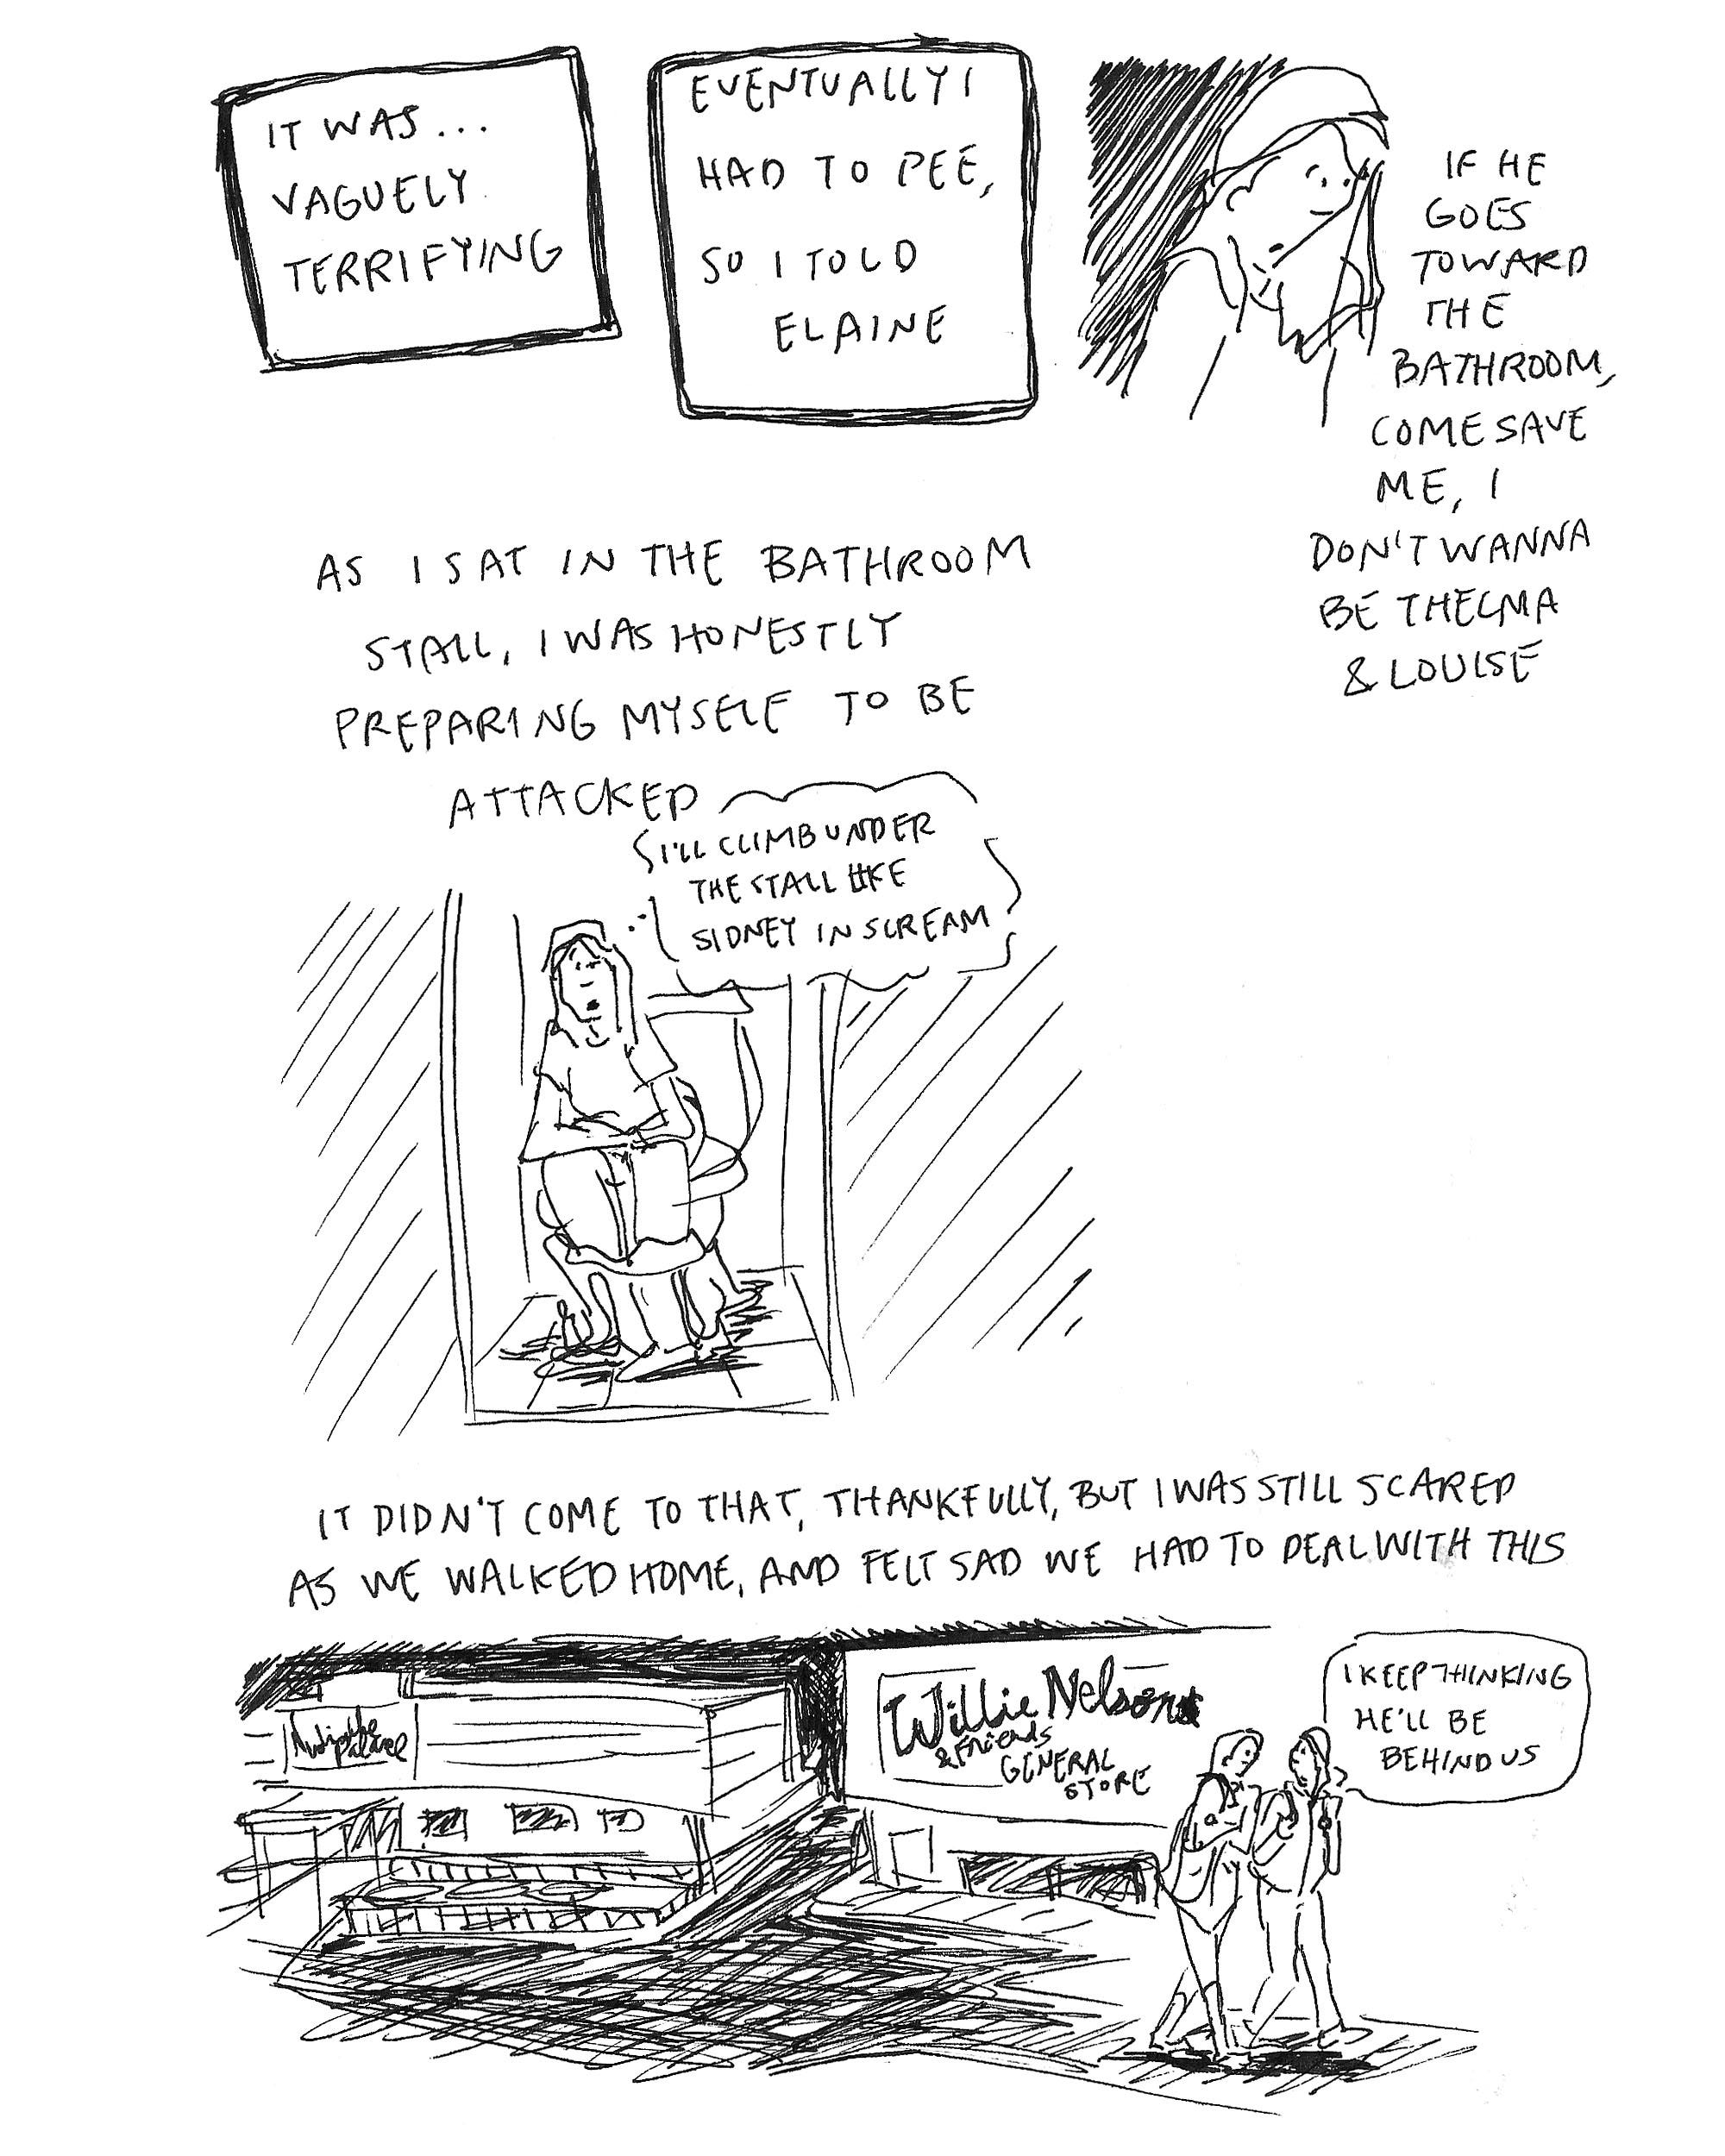 IT WAS...
VAGUELY
TERRIFYING
EVENTUALLY I
HAD TO PEE,
SO I TOLD
ELAINE
IF HE
GOES
TOWARD
THE
BATHROOM,
COME SAVE
ME, I
DON'T WANNA
BE THELMA
& LOUISE
AS I SAT IN THE BATHROOM
STALL, I WAS HONESTLY
PREPARING MYSELF TO BE
ATTACKED
I'LL CLIMB UNDER
THE STALL LIKE
SIDNEY IN SCREAM
IT DIDN'T COME TO THAT, THANKFULLY, BUT I WAS STILL SCARED
AS WE WALKED HOME, AND FELT SAD WE HAD TO DEAL WITH THIS
Nudie's
Palace
Willie Nelson
& Friends
GENERAL
STORE
I KEEP THINKING
HE'LL BE
BEHIND US